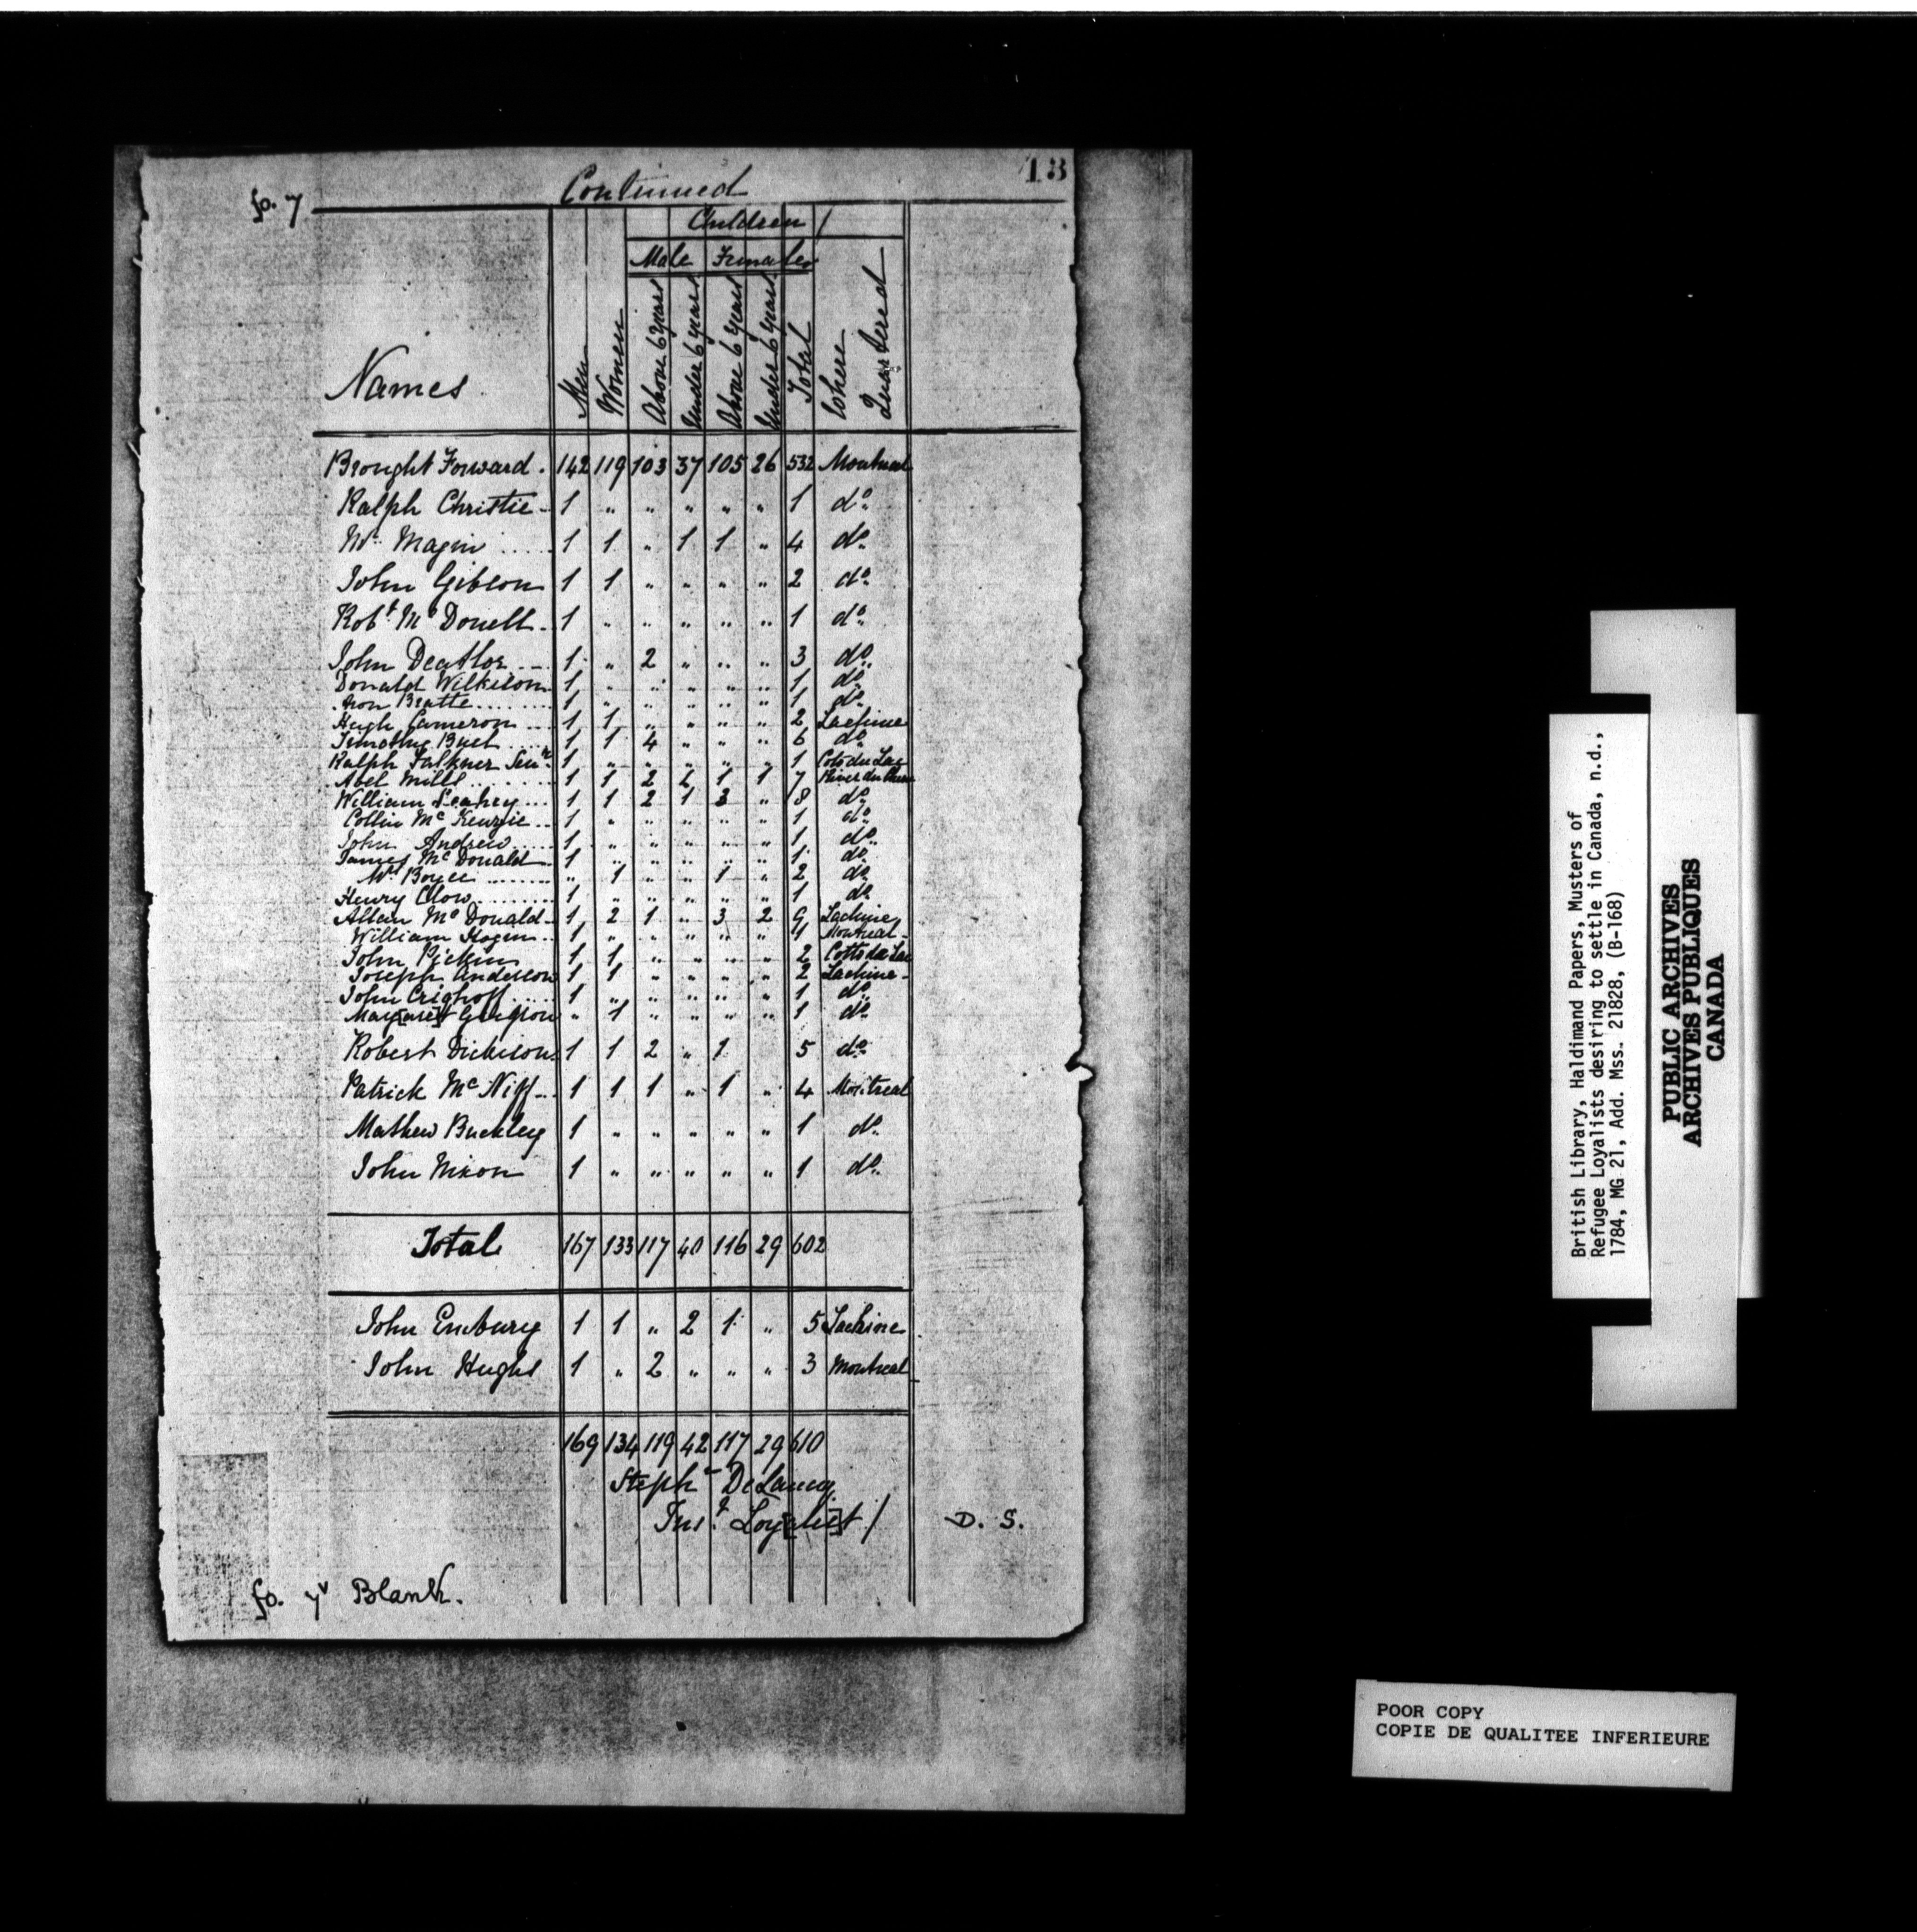 13
Continued
fo. 7
Children /
Male Females
Names Men Women Above 6 years Under 6 years Above 6 years Under 6 years Total Where Quartered
Brought Forward . 142 119 103 37 105 26 532 Montreal
Ralph Christie 1 " " " " " 1 do
Mr Magin ..... 1 1 " 1 1 " 4 do
John Gibson 1 1 " " " " 2 do
Robt Mc Donell 1 " " " " " 1 do
John Deathor ... 1 " 2 " " " 3 do
Donald Wilkison 1 " " " " " 1 do
Aron Beatte ....... 1 " " " " " 1 do
Hugh Cameron .... 1 1 " " " " 2 Lachine
Timothy Buel ..... 1 1 4 " " " 6 do
Ralph Falkner Senr 1 " " " " " 1 Coto du Lac
Abel Mills ....... 1 1 2 1 1 1 7 River du
William ... 1 1 2 1 3 " 8 do
Collin Mc Kenzie .. 1 " " " " " 1 do
John Andrew ..... 1 " " " " " 1 do
James Mc Donald 1 " " " " " 1 do
Boyce ........ " 1 " " 1 " 2 do
Henry Clow ........ 1 " " " " " 1 do
Allan Mc Donald 1 2 1 " 3 2 9 Lachine
William Hogan ... 1 " " " " " 1 Montreal
John Pickins 1 1 " " " " 2 Cotto da Lac
Joseph Anderson 1 1 " " " " 2 Lachine
John Crighoff ..... 1 " " " " " 1 do
Mar[gare]t " 1 " " " " 1 do
Robert Dickison 1 1 2 " 1 " 5 do
Patrick Mc Niff 1 1 1 " 1 " 4 Montreal
Mathew Buckley 1 " " " " " 1 do
John Nixon 1 " " " " " 1 do
Total 167 133 117 40 116 29 602
John Embury 1 1 " 2 1 " 5 Lachine
John Hughs 1 " 2 " " " 3 Montreal
169 134 119 42 117 29 610
Stephn DeLancy
Inst. Loy[alis]t / D. S.
fo. 7v Blank.
British Library, Haldimand Papers, Musters of
Refugee Loyalists desiring to settle in Canada, n.d.,
1784, MG 21, Add. Mss. 21828, (B-168)
PUBLIC ARCHIVES
ARCHIVES PUBLIQUES
CANADA
POOR COPY
COPIE DE QUALITEE INFERIEURE